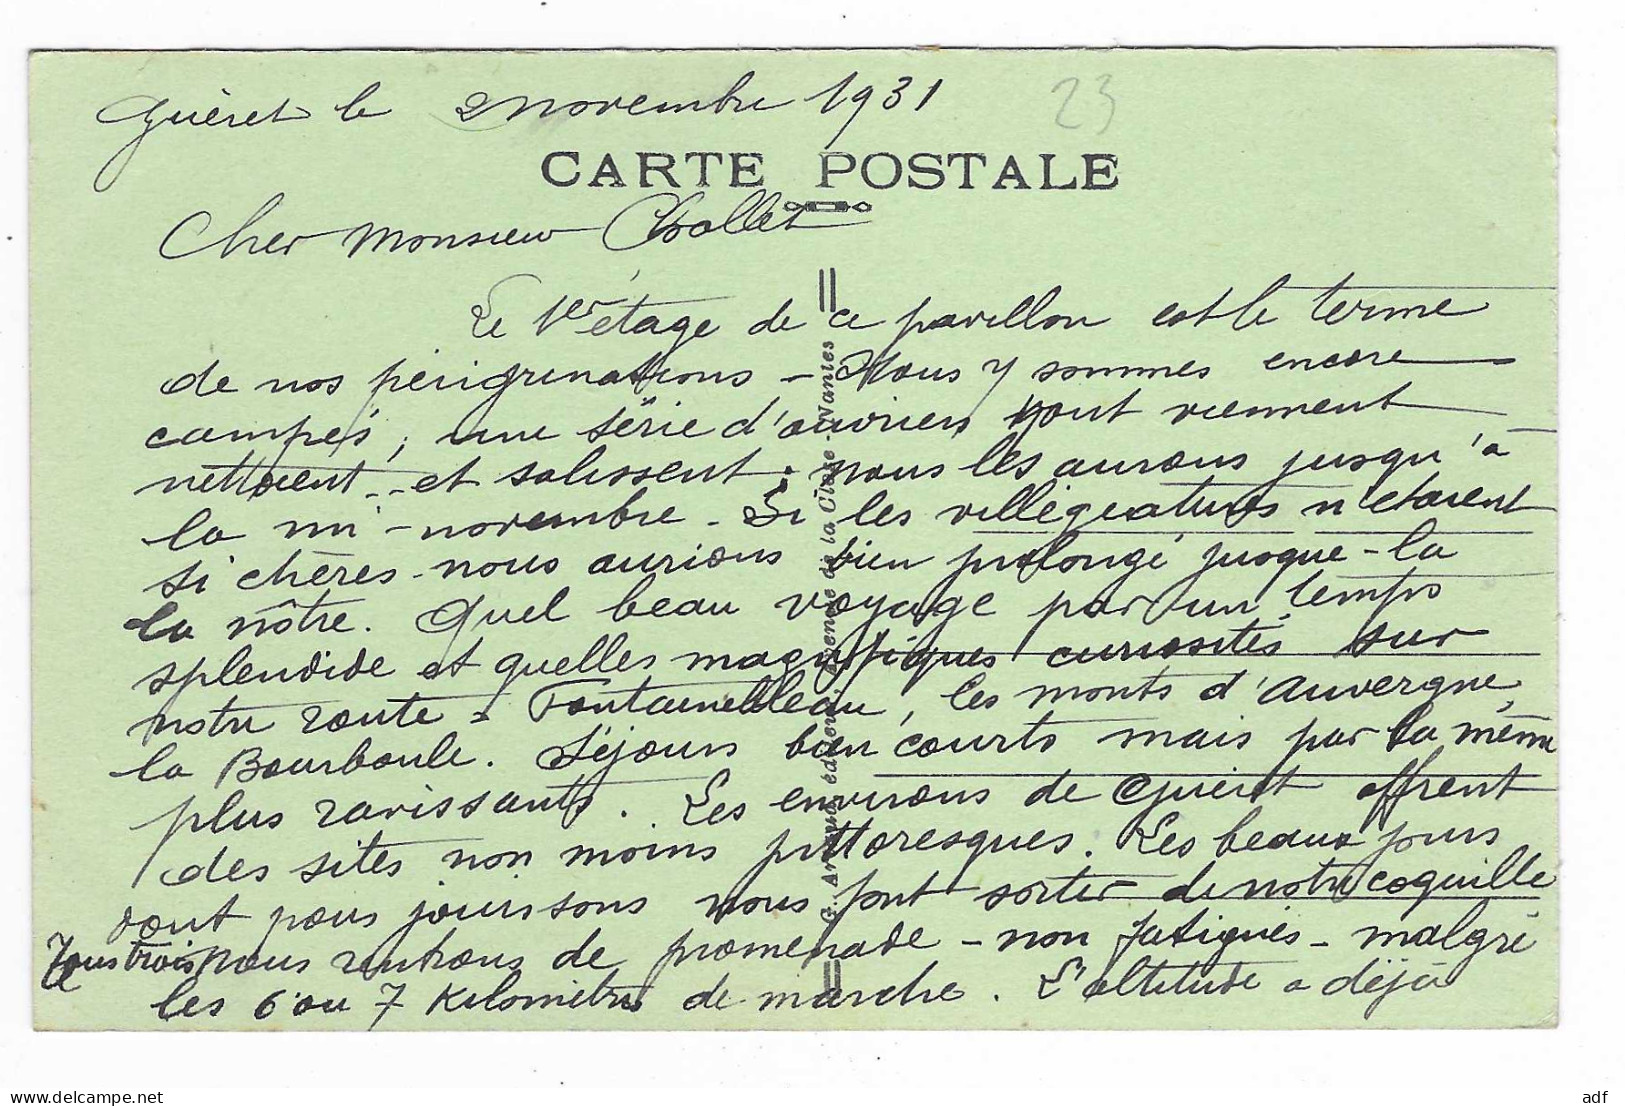 Guéret le 2 novembre 1931
23
CARTE POSTALE
Cher Monsieur Chollet
Le 1er étage de ce pavillon est le terme
de nos pérégrinations - Nous y sommes encore
campés, une série d'ouvriers vont viennent
nettoient et salissent. nous les aurons jusqu'à
la mi-novembre. Si les villégiatures n'étaient
si chères - nous aurions bien prolongé jusque-là
la nôtre. Quel beau voyage par un temps
splendide et quelles magnifiques curiosités sur
notre route - Fontainebleau, les monts d'Auvergne,
la Bourboule. Séjours bien courts mais par la même
plus ravissants. Les environs de Guéret offrent
des sites non moins pittoresques. Les beaux jours
dont nous jouissons nous font sortir de notre coquille
Tous trois nous rentrons de promenade - non fatigués - malgré
les 6 ou 7 kilomètres de marche. L'altitude a déjà
G. éditeur, Agence de la Nantes
adf